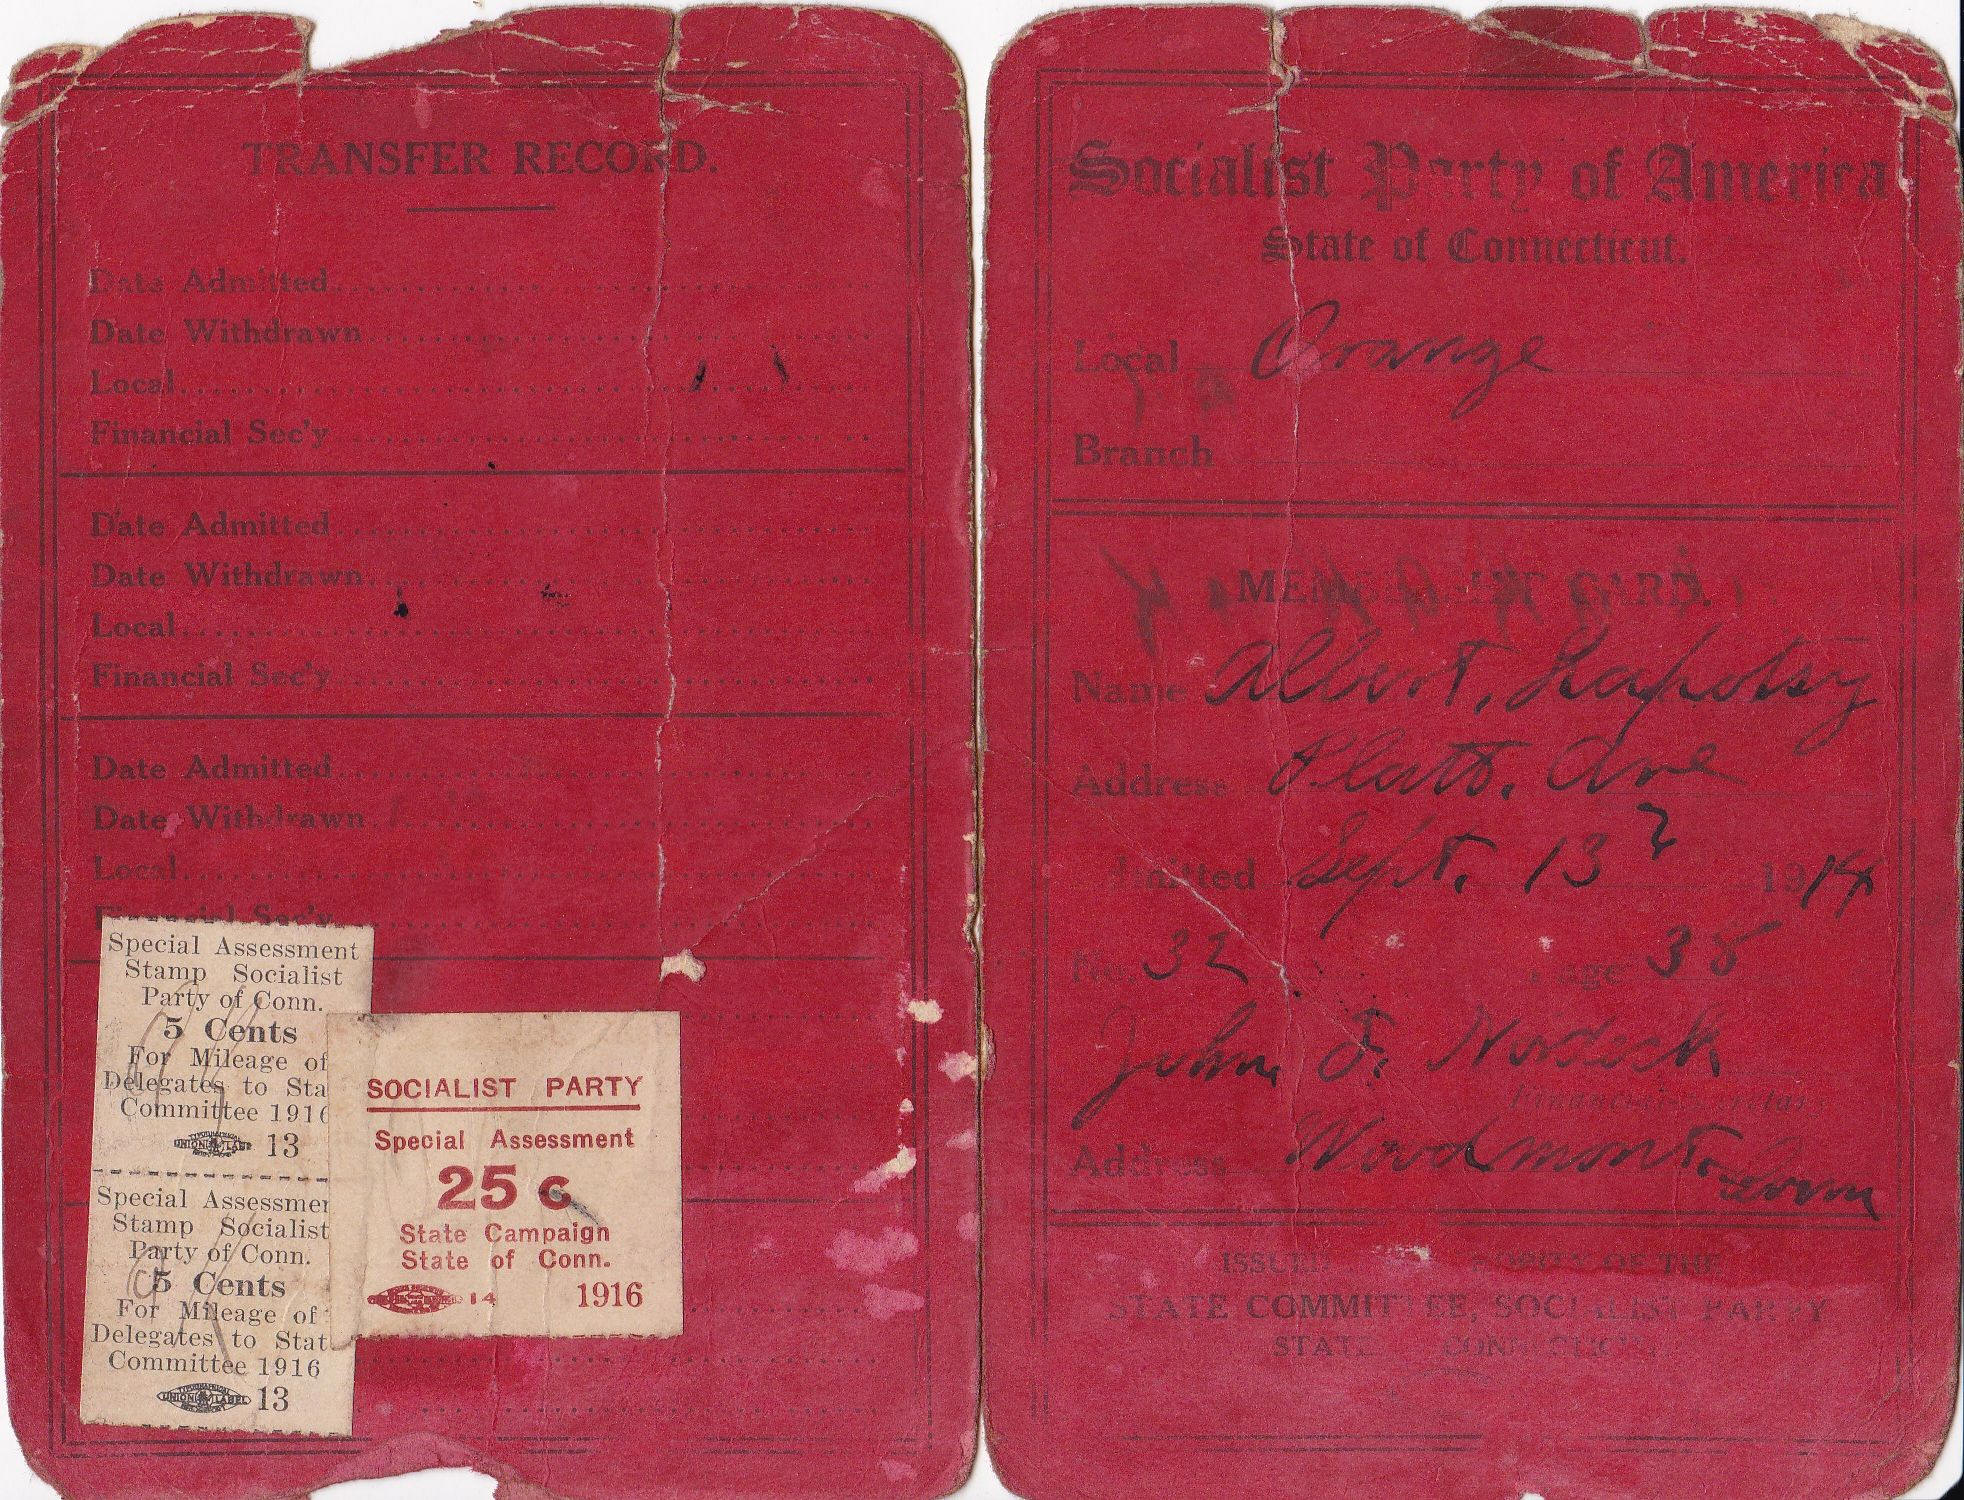 TRANSFER RECORD.
Date Admitted
Date Withdrawn
Local
Financial Sec'y
Date Admitted
Date Withdrawn
Local
Financial Sec'y
Date Admitted
Date Withdrawn
Local
Financial Sec'y
Special Assessment
Stamp Socialist
Party of Conn.
5 Cents
For Mileage of
Delegates to Sta
Committee 1916
UNION LABEL 13
Special Assessmen
Stamp Socialist
Party of Conn.
5 Cents
For Mileage of
Delegates to Stat
Committee 1916
UNION LABEL 13
SOCIALIST PARTY
Special Assessment
25 c
State Campaign
State of Conn.
14 1916
Socialist Party of America
State of Connecticut.
Local Orange
Branch
MEMBERSHIP CARD.
Name Albert,
Address Platt. Ave
Admitted Sept. 13 1914
No. 32 age 38
John F.
Financial Secretary
Address Woodmont. Conn
ISSUED OF THE
STATE COMMITTEE, SOCIALIST PARTY
STATE CONNECTICUT